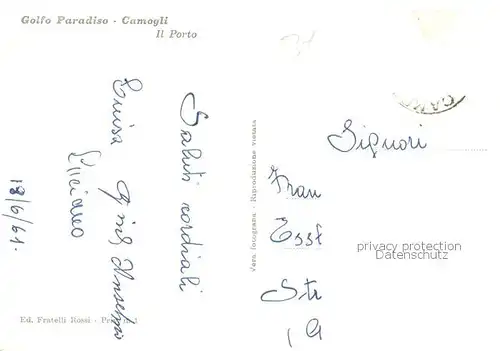 Golfo Paradiso - Camogli
Il Porto
Saluti cordiali
Luisa
Luciano
18/6/61.
Ed. Fratelli Rossi
Vera fotografia - Riproduzione vietata
Signori
Fran
Str
privacy protection
Datenschutz